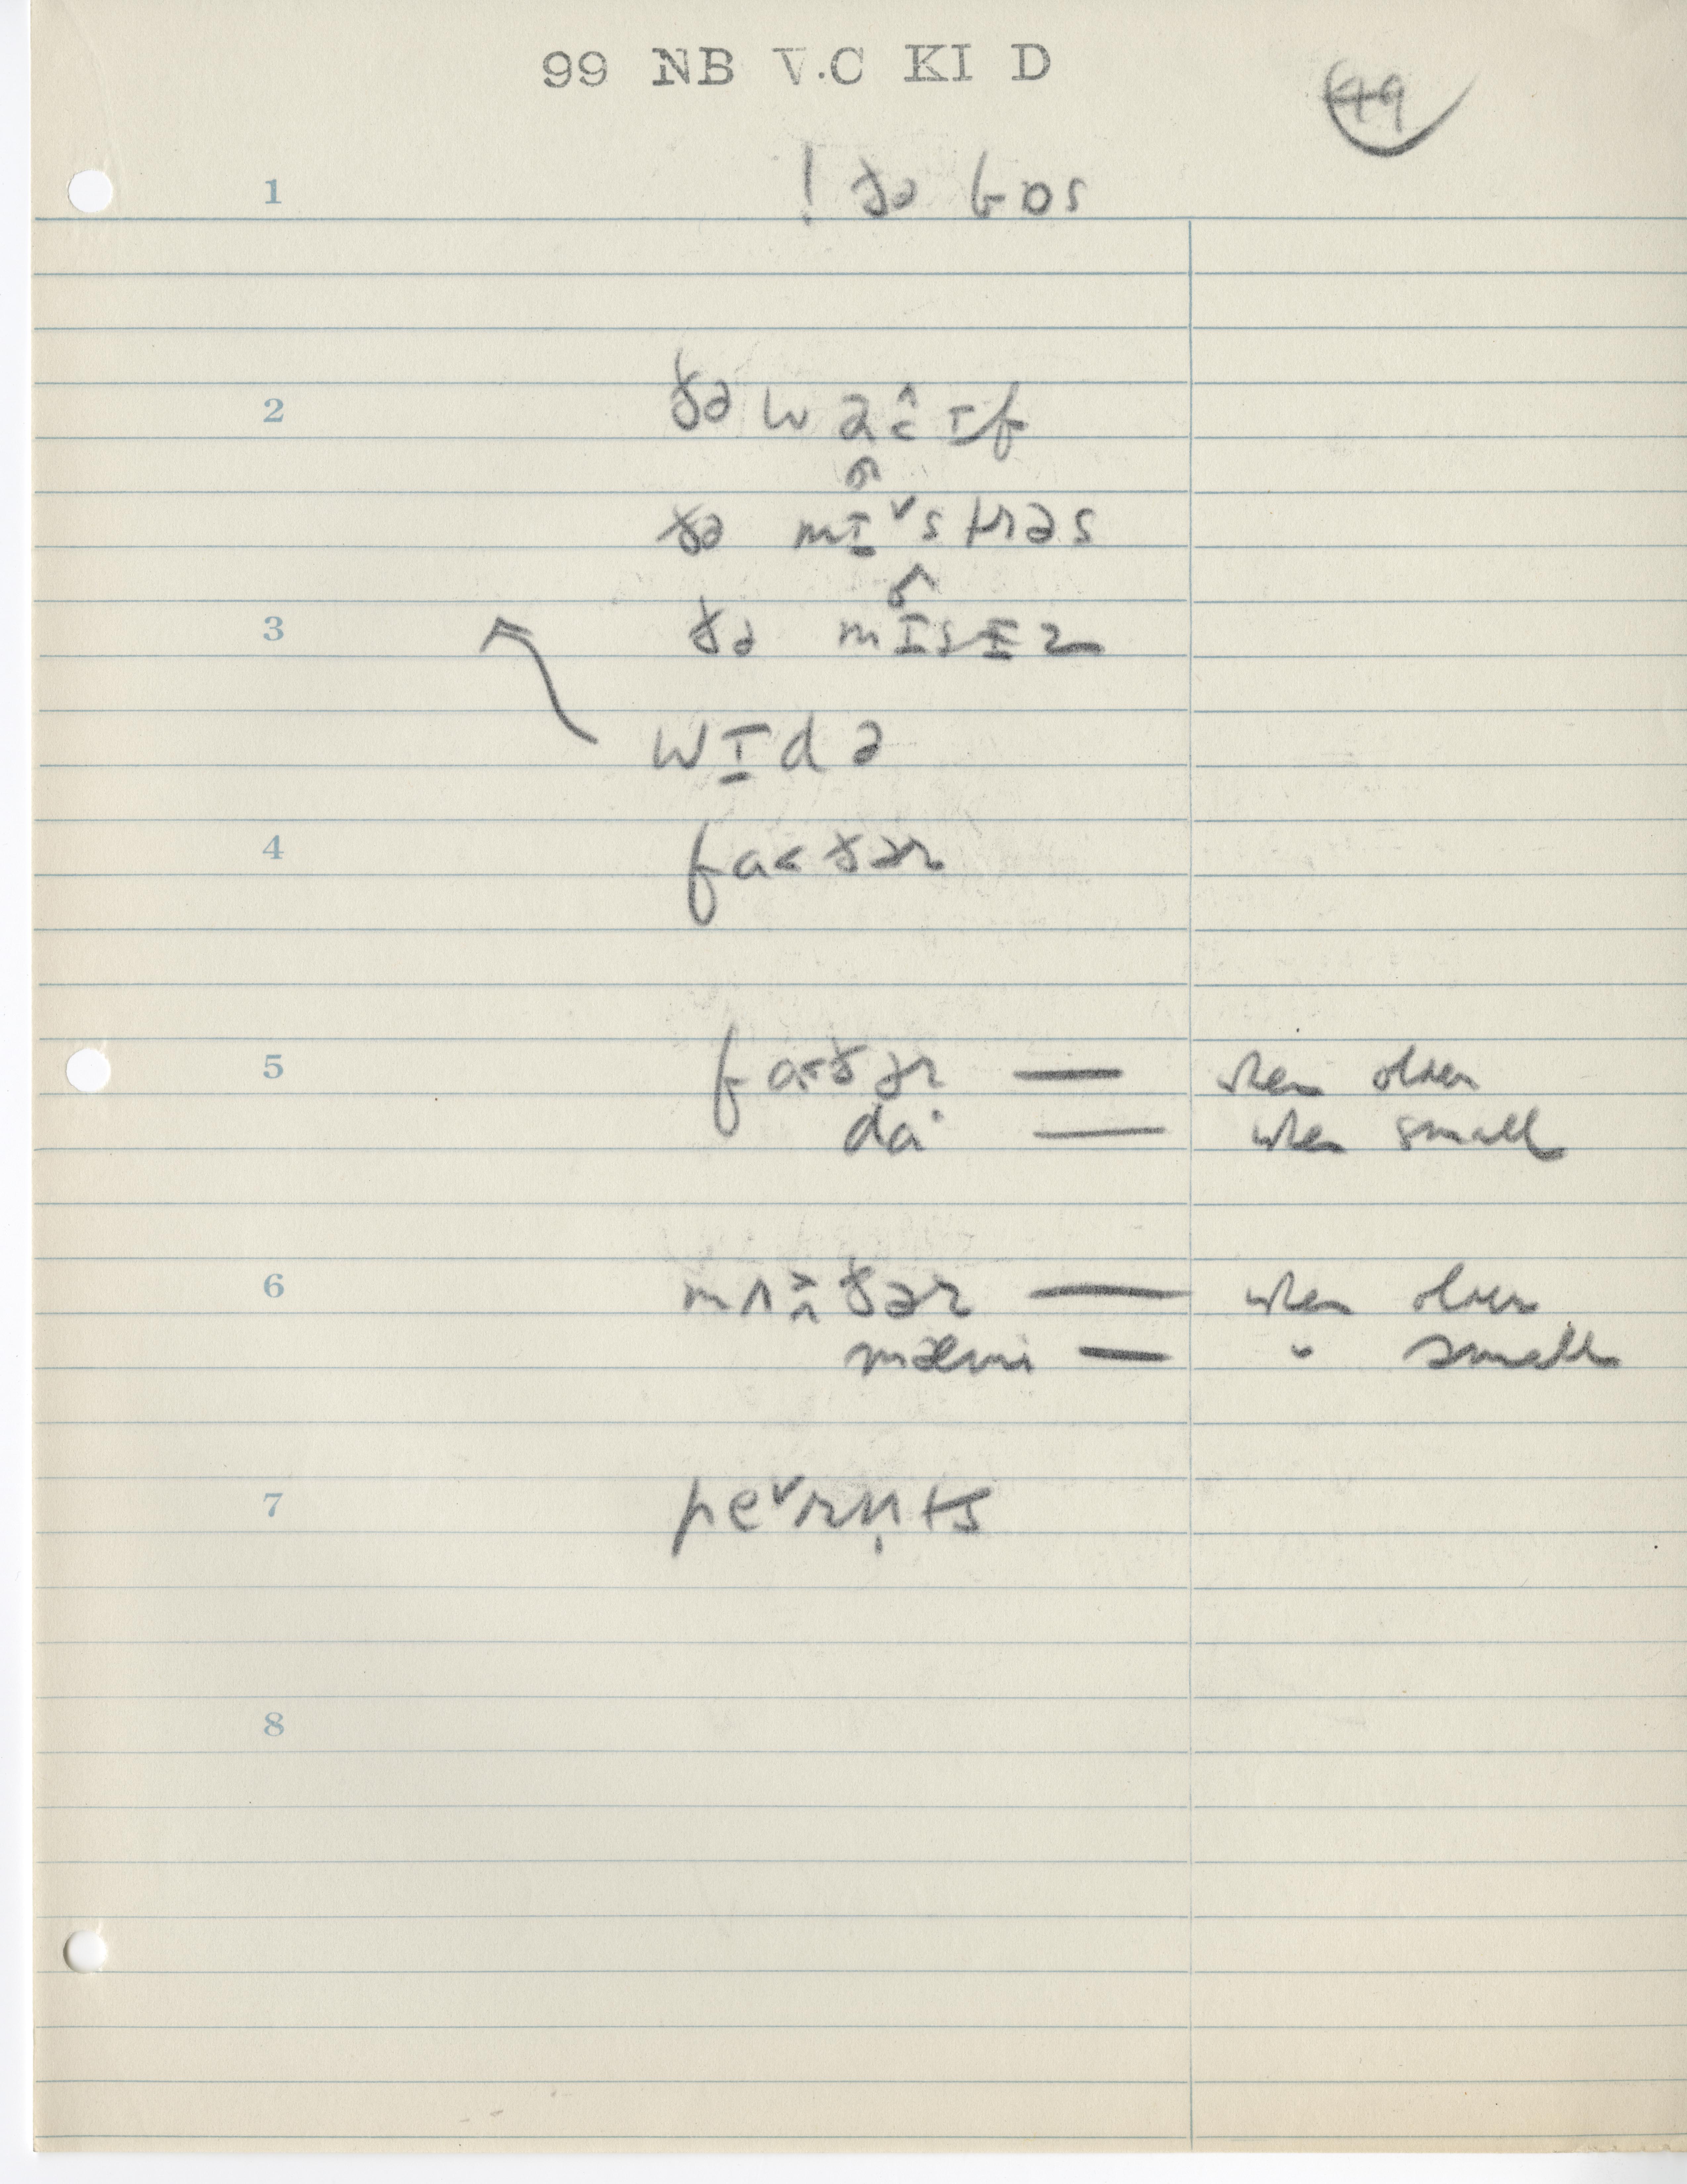 99 NB V.C KI D
49
1 ! ðə bɒs
2 ðə wəî ɪf
ðə mɪ˅stʀəs
3 ðə mɪsɪz
wɪdə
4 fa<ðər
5 fa<ðər — when older
da· — when small
6 mʌ ðər — when older
mæmi — " small
7 pe˅rn̩ts
8